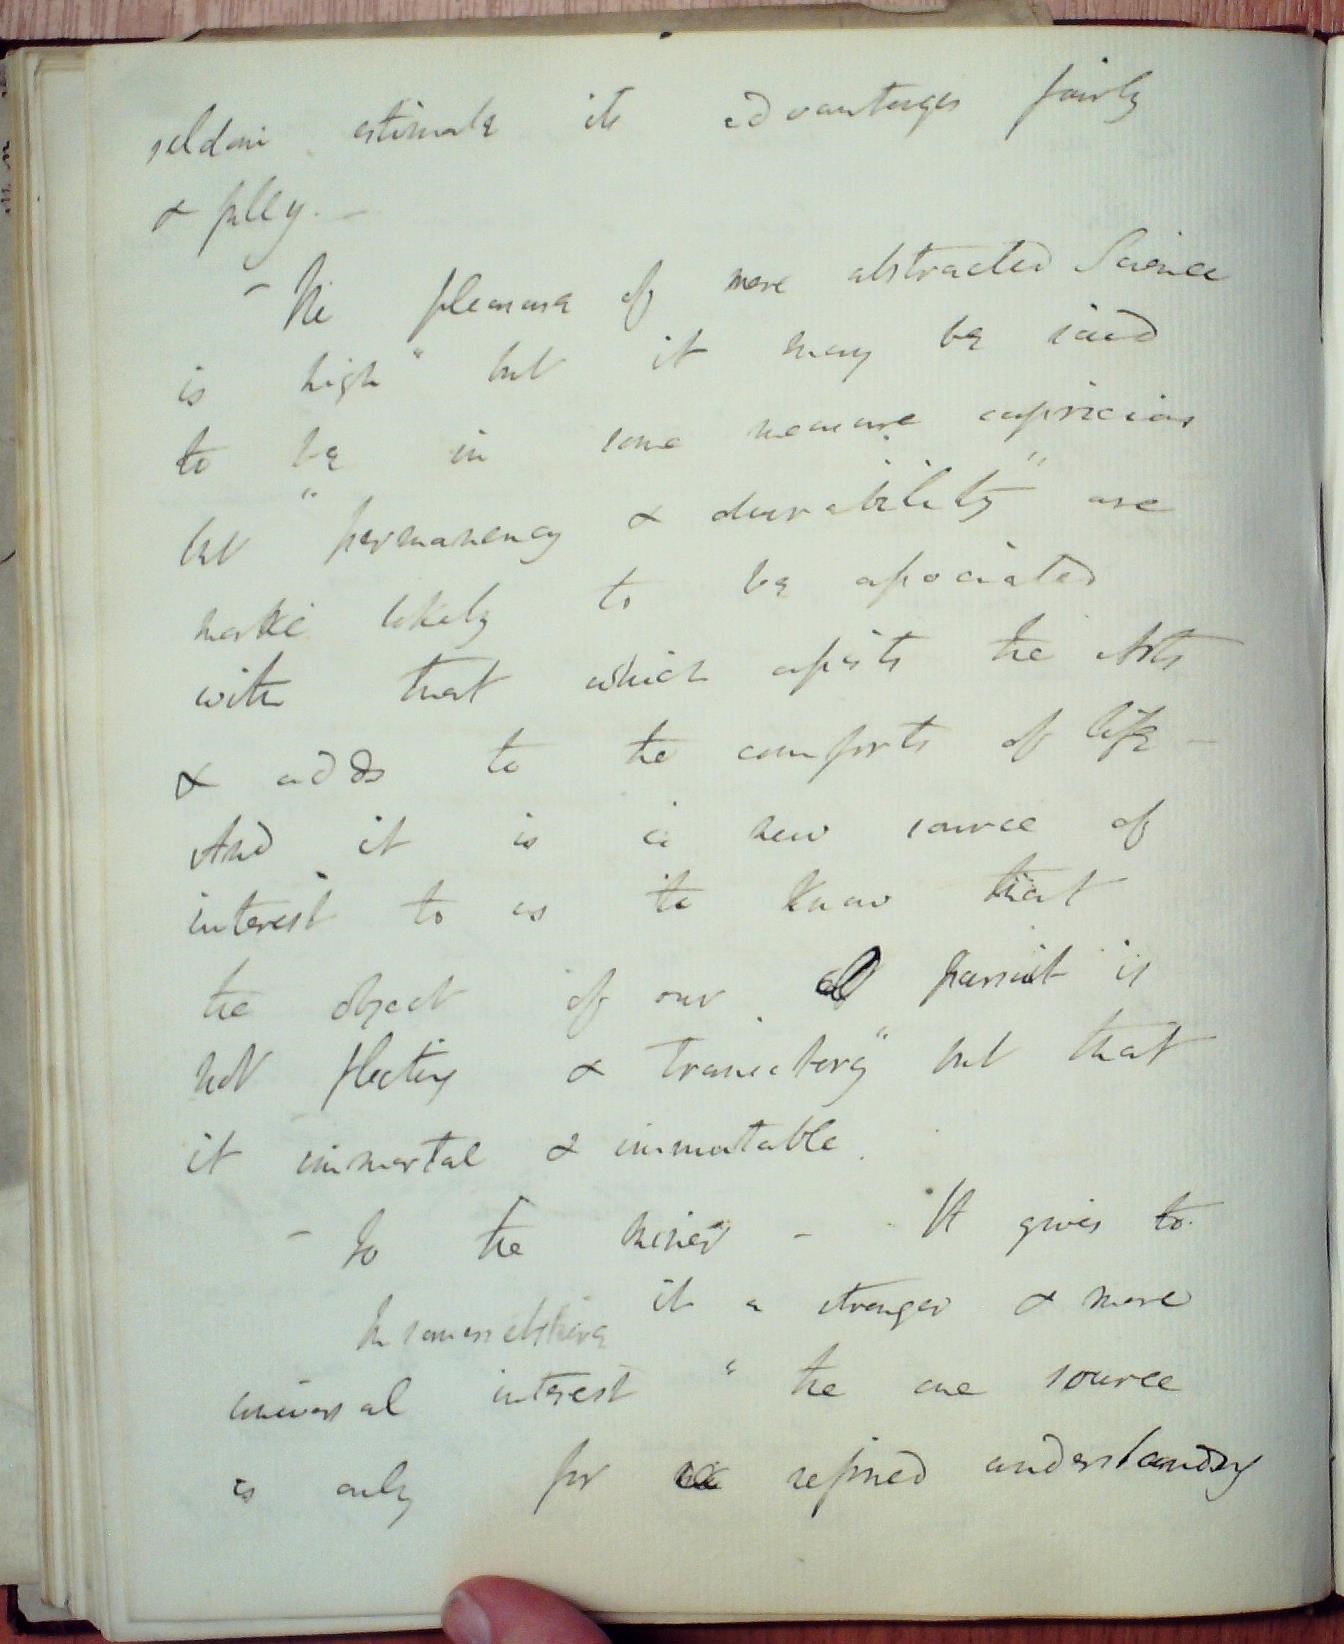 seldom estimate its advantages fairly
& fully. —
— The pleasure of mere abstracted Science
is high" but it may be said
to be in some measure capricious
but "permanency & durability" are
likely to be associated
with that which assists the Arts
& adds to the comforts of life —
And it is a new source of
interest to us to know that
the object of our pursuit is
not fleeting & transitory" but that
it immortal & immutable.
— To the miner — It gives to
it a stronger & more
universal interest " the one source
is only for refined understanding